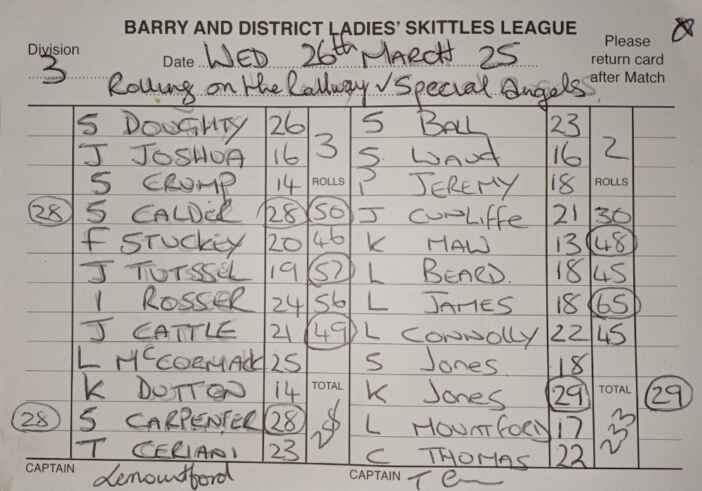 BARRY AND DISTRICT LADIES' SKITTLES LEAGUE
Division 3 Date WED 26th MARCH 25 Please return card after Match
Rolling on the Railway v Special Angels
S DOUGHTY 26 3 S BALL 23 2
J JOSHUA 16 S WAUD 16
S CRUMP 14 ROLLS P JEREMY 18 ROLLS
28 S CALDER 28 50 J CUNLIFFE 21 30
F STUCKEY 20 46 K MAW 13 48
J TUTSSEL 19 57 L BEARD. 18 45
I ROSSER 24 56 L JAMES 18 65
J CATTLE 21 49 L CONNOLLY 22 45
L McCORMACK 25 S Jones 18
K DUTTON 14 TOTAL K Jones 29 TOTAL 29
28 S CARPENTER 28 L MOUNTFORD 17 233
T CERIANI 23 C THOMAS 22
CAPTAIN Lmountford CAPTAIN